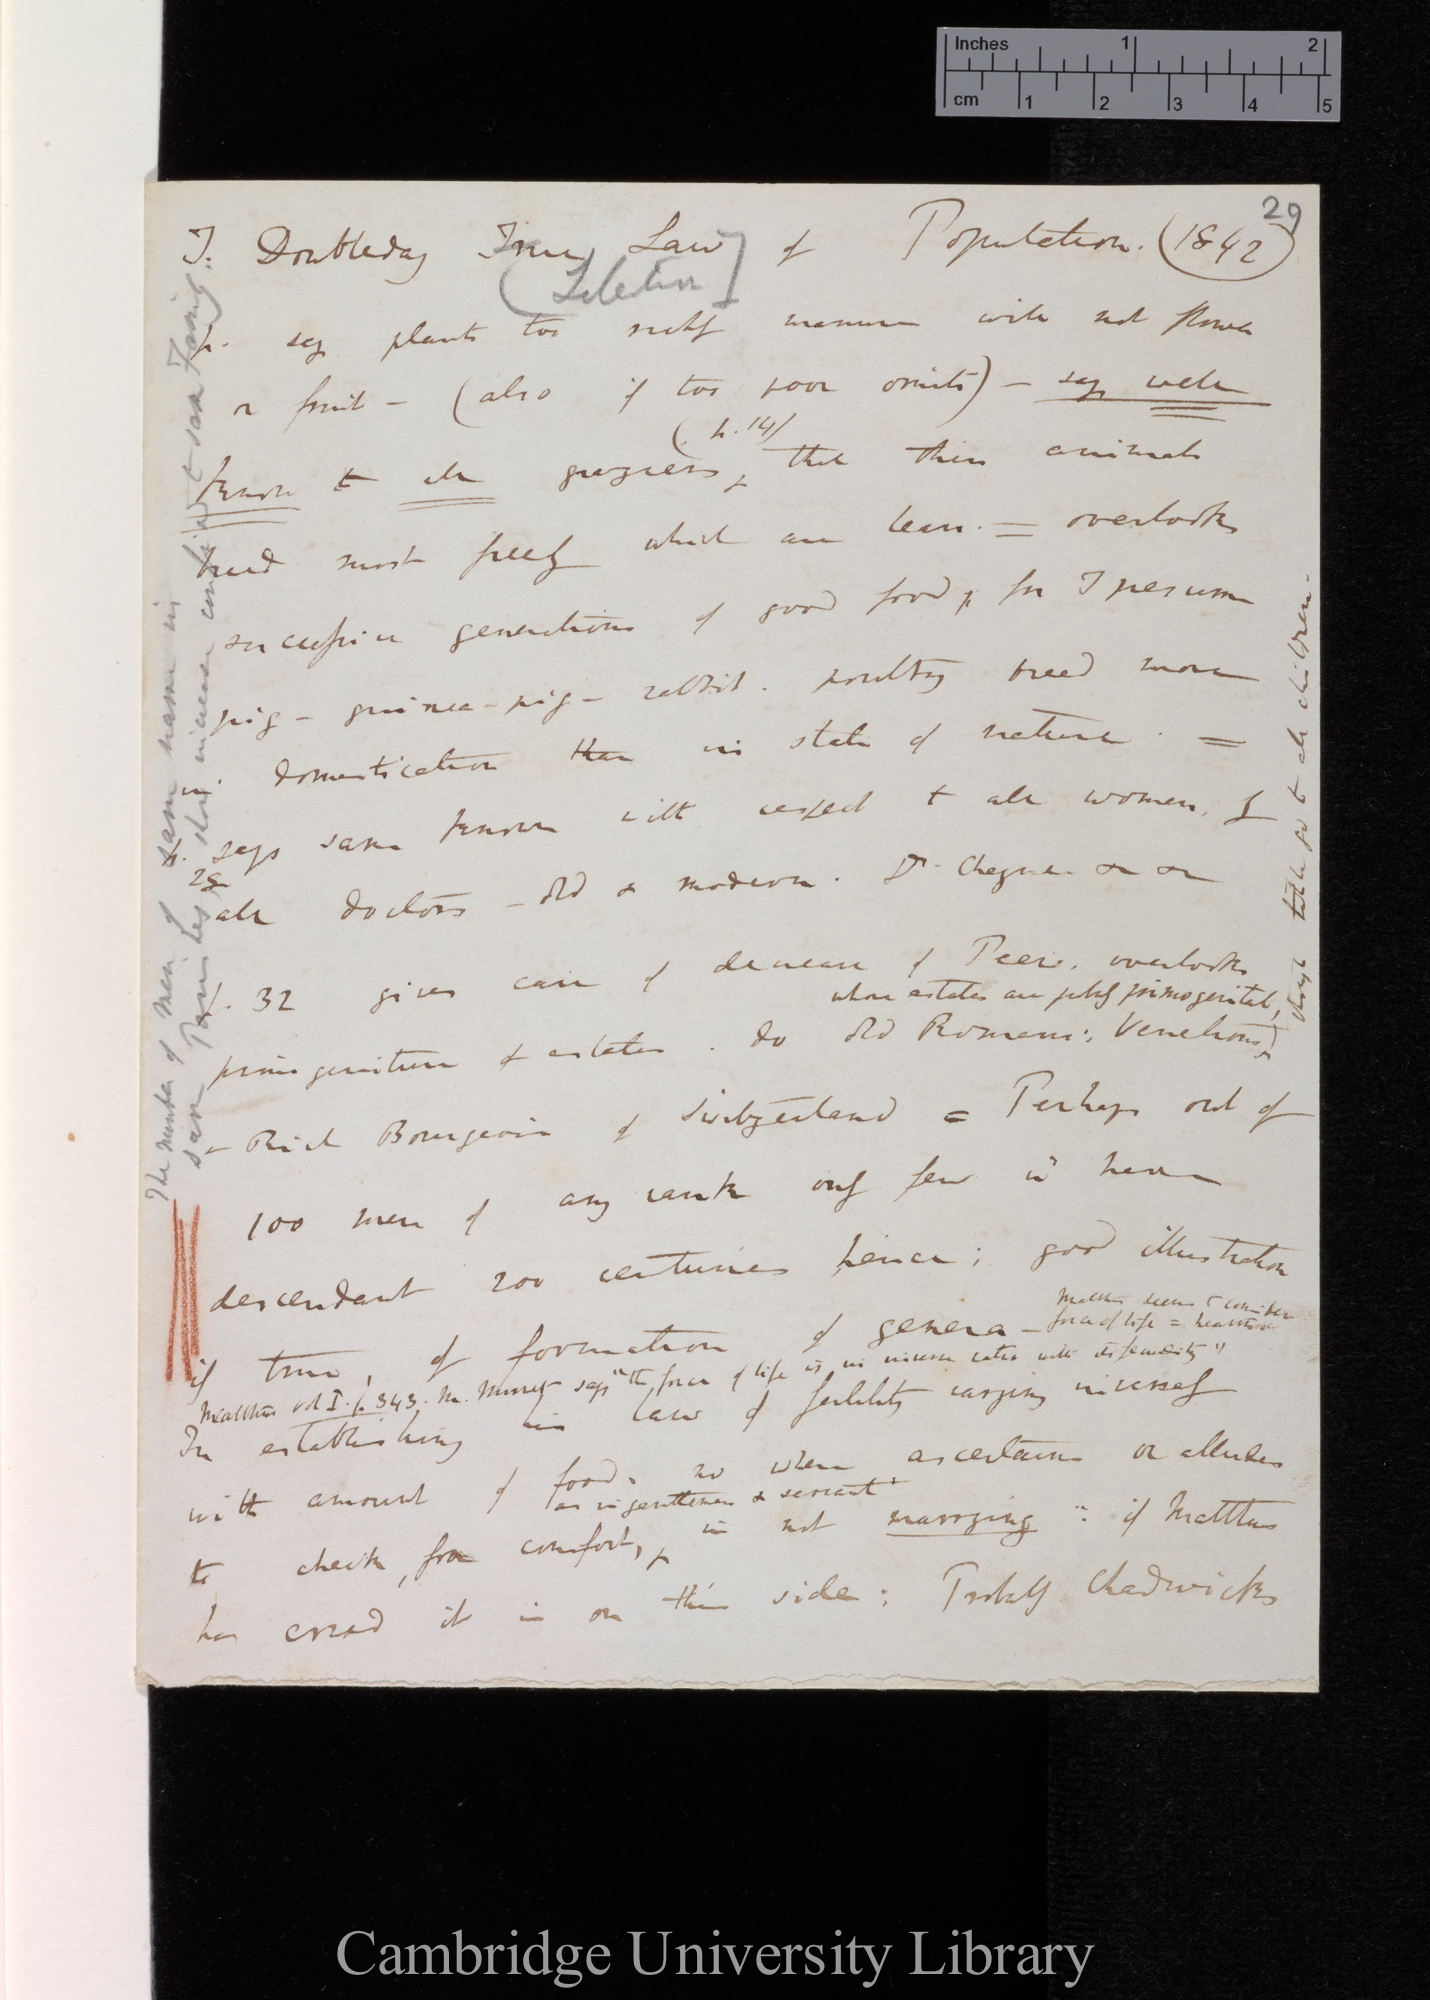 Inches 1 2
cm 1 2 3 4 5
29
T. Doubleday True Law of Population. (1842)
(Selection]
p. says plants too richly manured will not flower
or fruit – (also if too poor omits) – says well
(p. 14)
known to all graziers, that those animals
breed most freely which are lean. = overlooks
successive generations of good food; for I presume
pig – guinea-pig – rabbit. poultry breed more
in domestication than in state of nature. =
p. 28 says same known with respect to all women, by
all doctors – old & modern. Dr. Cheyne
p. 32 gives case of decrease of Peers. overlooks
whose estates are partly primogenital,
though titles go to all children.
primogeniture & estates. do old Romans; Venetians,
– Rich Bourgeois of Switzerland = Perhaps out of
100 men of any rank only few will have
descendant 200 centuries hence; good illustration
if true, of formation of genera –
Malthus seems to consider
force of life = healthiness
Malthus vol I. p. 343. M. Muret says "the force of life is in inverse ratio with its fecundity"
In establishing his law of fertility varying inversely
with amount of food. no where ascertains or alludes
as in gentlemen & servants
to check, from comfort, in not marrying ∴ if Malthus
has erred it is on this side; Probably Chadwicks
The number of men of same name in
same Parish
Cambridge University Library